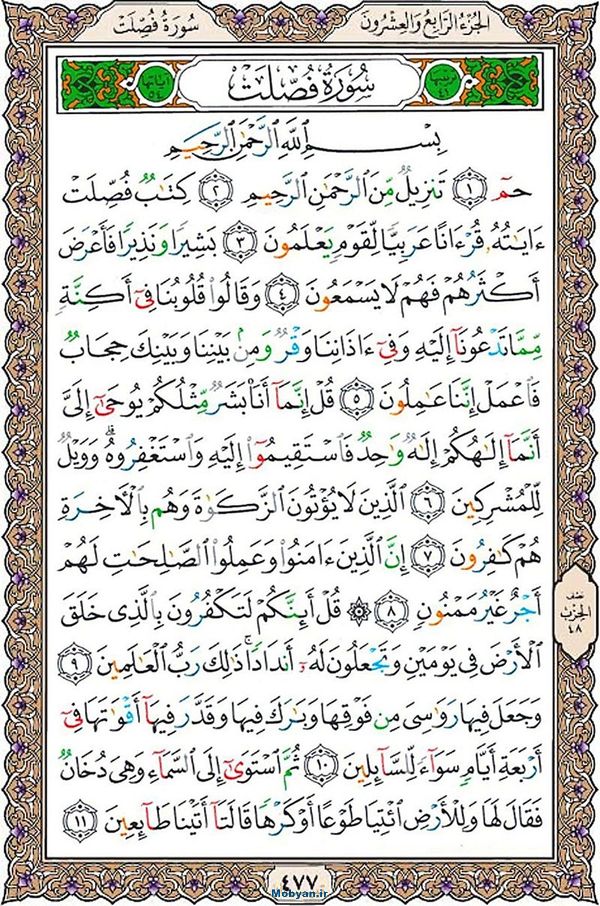 الجزء الرابع والعشرون
سورة فصلت
سُورَةُ فُصِّلَتْ
بِسْمِ ٱللَّهِ ٱلرَّحْمَٰنِ ٱلرَّحِيمِ
حمٓ ١ تَنزِيلٌ مِّنَ ٱلرَّحْمَٰنِ ٱلرَّحِيمِ ٢ كِتَٰبٌ فُصِّلَتْ
ءَايَٰتُهُۥ قُرْءَانًا عَرَبِيًّا لِّقَوْمٍ يَعْلَمُونَ ٣ بَشِيرًا وَنَذِيرًا فَأَعْرَضَ
أَكْثَرُهُمْ فَهُمْ لَا يَسْمَعُونَ ٤ وَقَالُوا۟ قُلُوبُنَا فِىٓ أَكِنَّةٍ
مِّمَّا تَدْعُونَآ إِلَيْهِ وَفِىٓ ءَاذَانِنَا وَقْرٌ وَمِنۢ بَيْنِنَا وَبَيْنِكَ حِجَابٌ
فَٱعْمَلْ إِنَّنَا عَٰمِلُونَ ٥ قُلْ إِنَّمَآ أَنَا۠ بَشَرٌ مِّثْلُكُمْ يُوحَىٰٓ إِلَىَّ
أَنَّمَآ إِلَٰهُكُمْ إِلَٰهٌ وَٰحِدٌ فَٱسْتَقِيمُوٓا۟ إِلَيْهِ وَٱسْتَغْفِرُوهُ ۗ وَوَيْلٌ
لِّلْمُشْرِكِينَ ٦ ٱلَّذِينَ لَا يُؤْتُونَ ٱلزَّكَوٰةَ وَهُم بِٱلْءَاخِرَةِ
هُمْ كَٰفِرُونَ ٧ إِنَّ ٱلَّذِينَ ءَامَنُوا۟ وَعَمِلُوا۟ ٱلصَّٰلِحَٰتِ لَهُمْ
أَجْرٌ غَيْرُ مَمْنُونٍ ٨ ۞ قُلْ أَئِنَّكُمْ لَتَكْفُرُونَ بِٱلَّذِى خَلَقَ
ٱلْأَرْضَ فِى يَوْمَيْنِ وَتَجْعَلُونَ لَهُۥٓ أَندَادًا ۚ ذَٰلِكَ رَبُّ ٱلْعَٰلَمِينَ ٩
وَجَعَلَ فِيهَا رَوَٰسِىَ مِن فَوْقِهَا وَبَٰرَكَ فِيهَا وَقَدَّرَ فِيهَآ أَقْوَٰتَهَا فِىٓ
أَرْبَعَةِ أَيَّامٍ سَوَآءً لِّلسَّآئِلِينَ ١٠ ثُمَّ ٱسْتَوَىٰٓ إِلَى ٱلسَّمَآءِ وَهِىَ دُخَانٌ
فَقَالَ لَهَا وَلِلْأَرْضِ ٱئْتِيَا طَوْعًا أَوْ كَرْهًا قَالَتَآ أَتَيْنَا طَآئِعِينَ ١١
نصف
الحزب
٤٨
٤٧٧
Mobyan.ir